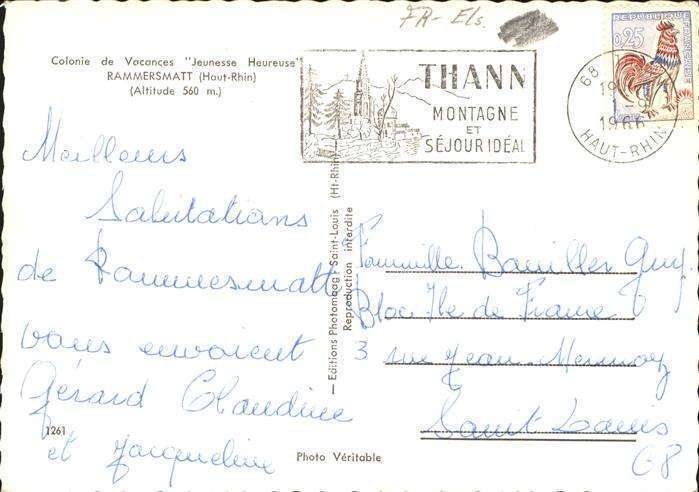 FR-Els.
Colonie de Vacances "Jeunesse Heureuse"
RAMMERSMATT (Haut-Rhin)
(Altitude 560 m.)
THANN
MONTAGNE
ET
SÉJOUR IDÉAL
REPUBLIQUE FRANÇAISE
0,25
68
1966
HAUT-RHIN
Meilleurs
Salutations
de Rammersmatt
vous envoient
Gérard Claudine
et Jacqueline
1261
Photo Véritable
— Editions Photombag Saint-Louis (Ht-Rhin)
Reproduction interdite
Famille Bouiller Guy
Bloc Ile de France
3 rue Jean-Mermoz
Saint Louis
68